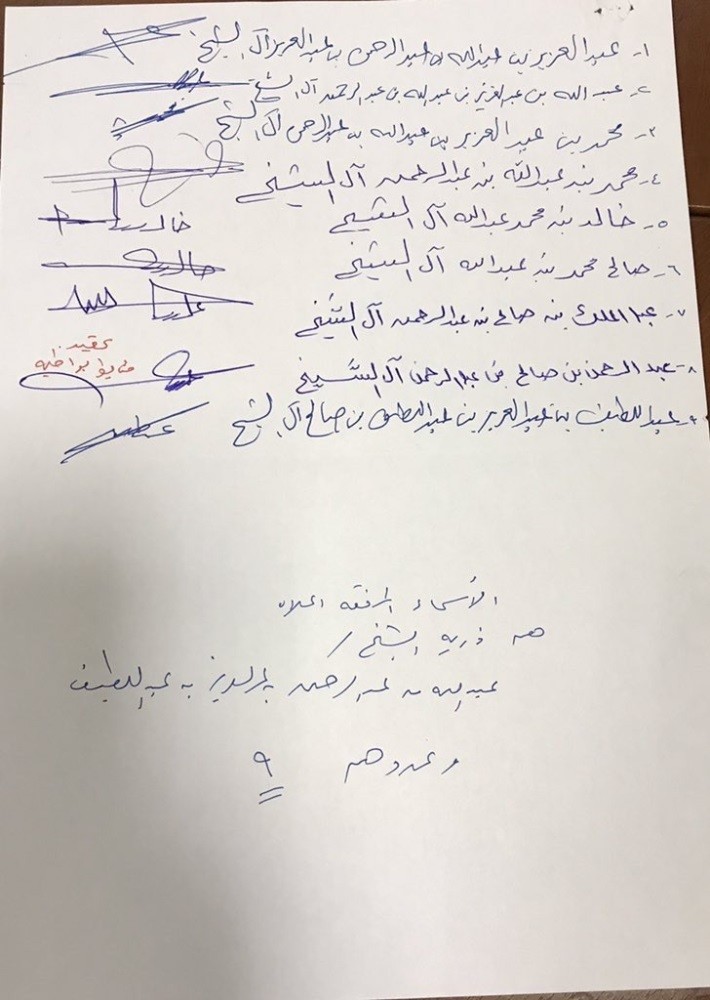 ١- عبد العزيز بن عبدالله بن عبدالرحمن بن عبدالعزيز آل الشيخ
٢- عبد الله بن عبدالعزيز بن عبدالله بن عبدالرحمن آل الشيخ
٣- محمد بن عبد العزيز بن عبدالله بن عبدالرحمن آل الشيخ
٤- محمد بن عبدالله بن عبدالرحمن آل الشيخ
٥- خالد بن محمد عبدالله آل الشيخ خالد
٦- صالح محمد بن عبدالله آل الشيخ
٧- عبدالملك بن صالح بن عبدالرحمن آل الشيخ
٨- عبد الرحمن بن صالح بن عبدالرحمن آل الشيخ
٩- عبداللطيف بن عبدالعزيز بن عبداللطيف بن صالح آل الشيخ
الأسماء المرفقه اعلاه
هم ذرية الشيخ /
عبدالله بن عبدالرحمن بن عبدالعزيز بن عبداللطيف
وعددهم ٩